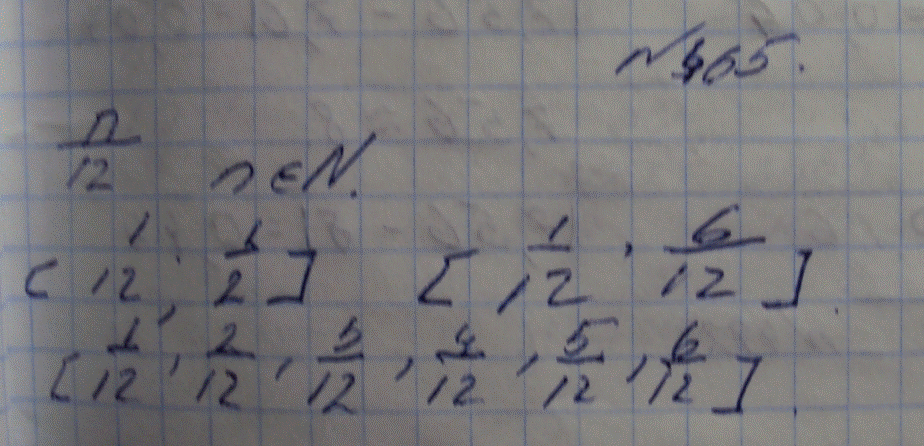 №465.
n/12 n∈N.
[1/12; 1/2] [1/12; 6/12].
[1/12, 2/12, 3/12, 4/12, 5/12, 6/12].